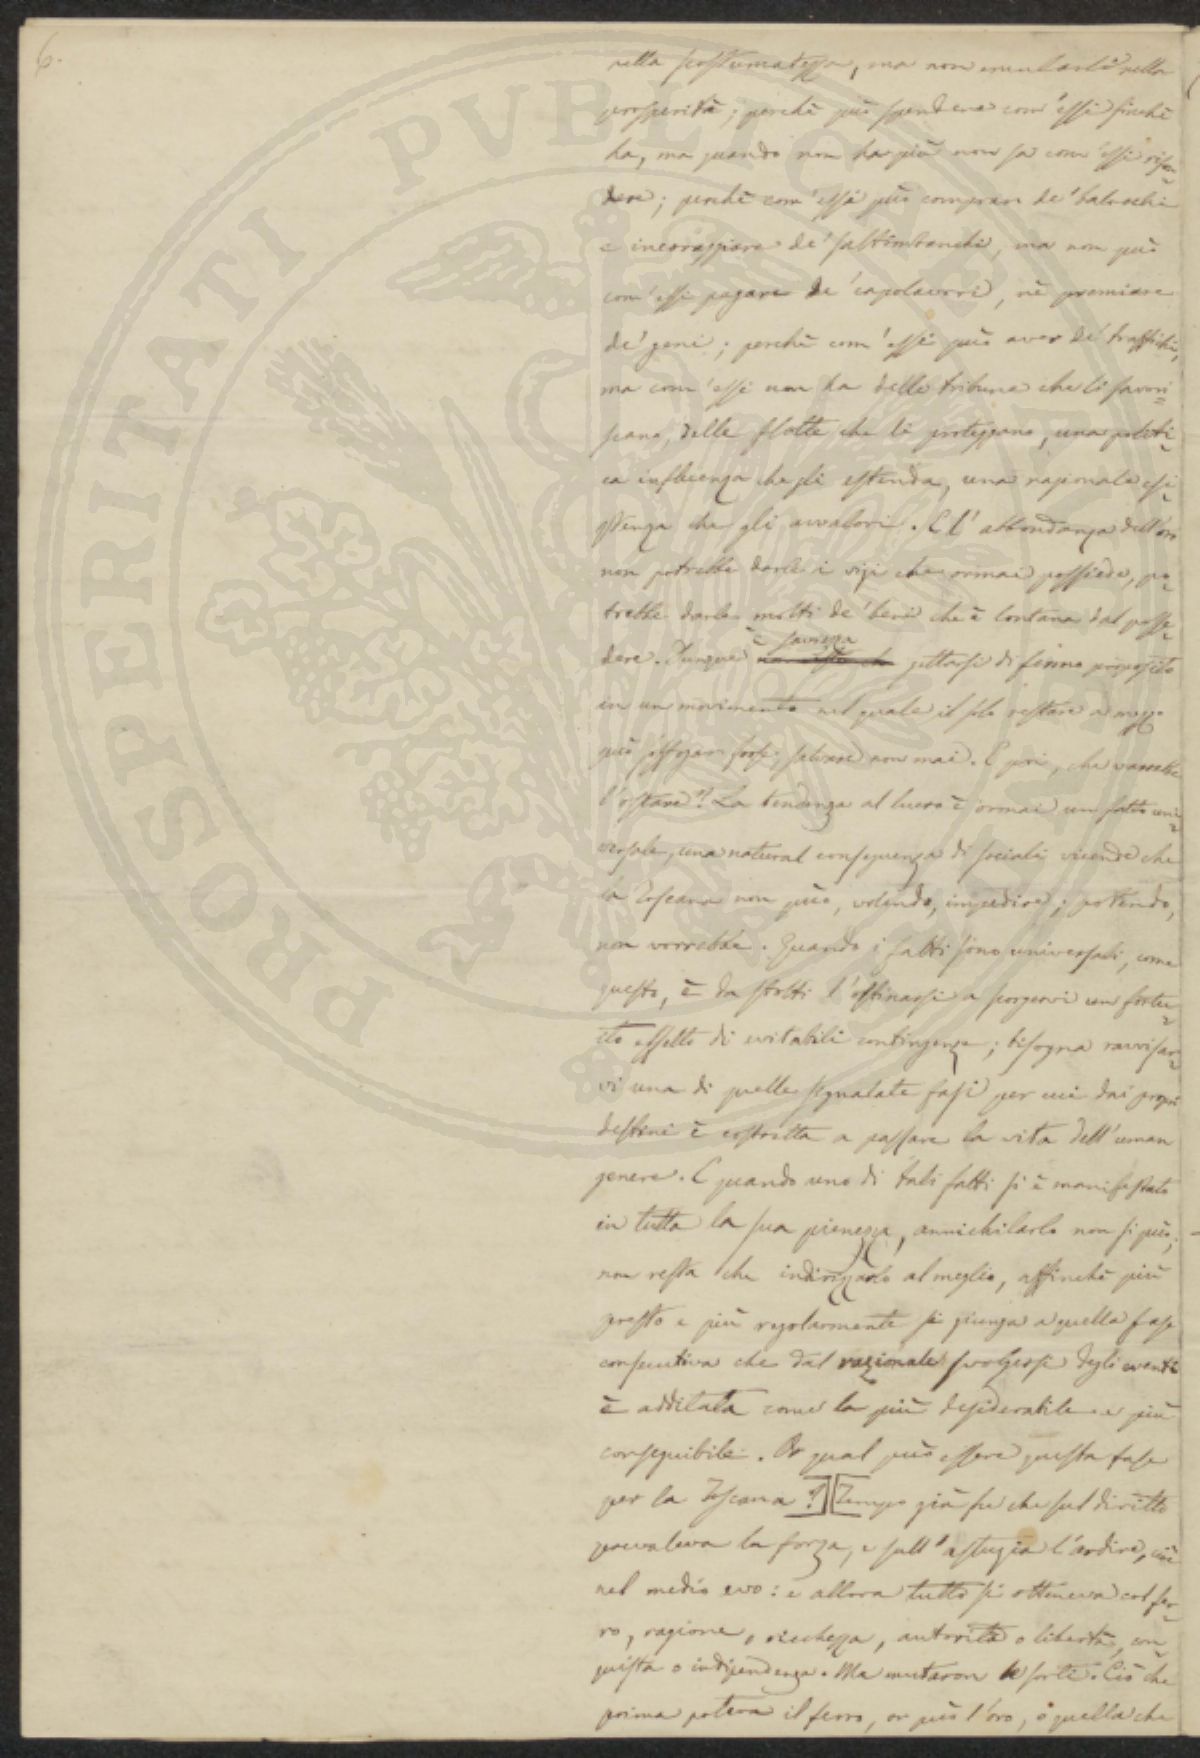 6.
nella scostumatezza, ma non emularli nella
prosperità; perchè può spendere com'essi finchè
ha, ma quando non ha più non sa com'essi rifon=
dere; perchè com'essi può comprar de' balocchi
e incoraggiare de' saltimbanchi, ma non può
com'essi pagare de' capolavori, nè premiare
de' geni; perchè com'essi può aver de' traffichi,
ma com'essi non ha delle tribune che li favori=
scano, delle flotte che li proteggano, una politi=
ca influenza che gli estenda, una razionale esi=
stenza che gli avvalori. E l'abbondanza dell'oro
non potrebbe darle i vizi che ormai possiede, po=
trebbe darle molti de' beni che è lontana dal posse=
dere. Dunque è saviezza gettarsi di fermo proposito
in un movimento nel quale il solo restare a mezzo
può forse, salvare non mai. E poi, che varrebbe
l'ostare? La tendenza al lucro è ormai un fatto uni=
versale, una natural conseguenza di sociali vicende che
la Toscana non può, volendo, impedire; potendo,
non vorrebbe. Quando i fatti sono universali, come
questo, è da stolti l'ostinarsi a scorgervi un fortu=
ito effetto di evitabili contingenze; bisogna ravvisar=
vi una di quelle segnalate fasi per cui dai propri
destini è costretta a passare la vita dell'uman
genere. E quando uno di tali fatti si è manifestato
in tutta la sua pienezza, annichilarlo non si può;
non resta che indirizzarlo al meglio, affinchè più
presto e più regolarmente si giunga a quella fase
consecutiva che dal razionale svolgersi degli eventi
è additata come la più desiderabile e più
conseguibile. Or qual può essere questa fase
per la Toscana?][Tempo già fu che sul diritto
prevaleva la forza, e sull'astuzia l'ardire, cioè
nel medio evo: e allora tutto si otteneva col fer=
ro, ragione, o ricchezza, autorità o libertà, con=
quista o indipendenza. Ma mutaron le sorti. Ciò che
prima poteva il ferro, or può l'oro, o quella che